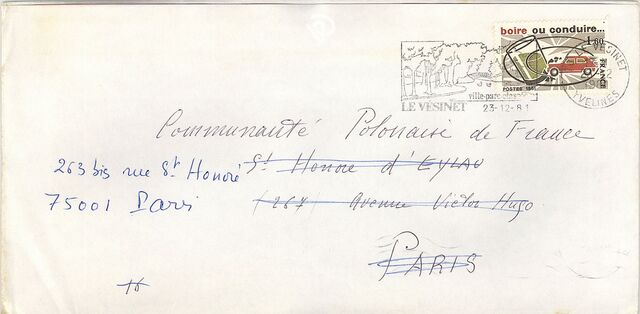 boire ou conduire...
1,60
POSTES 1981
LE VESINET
YVELINES
ville-parc classée
LE VESINET 23-12-81
Communauté Polonaise de France
263 bis rue St Honoré
75001 Paris
St Honore d'EYLAU
267 Avenue Victor Hugo
PARIS
16